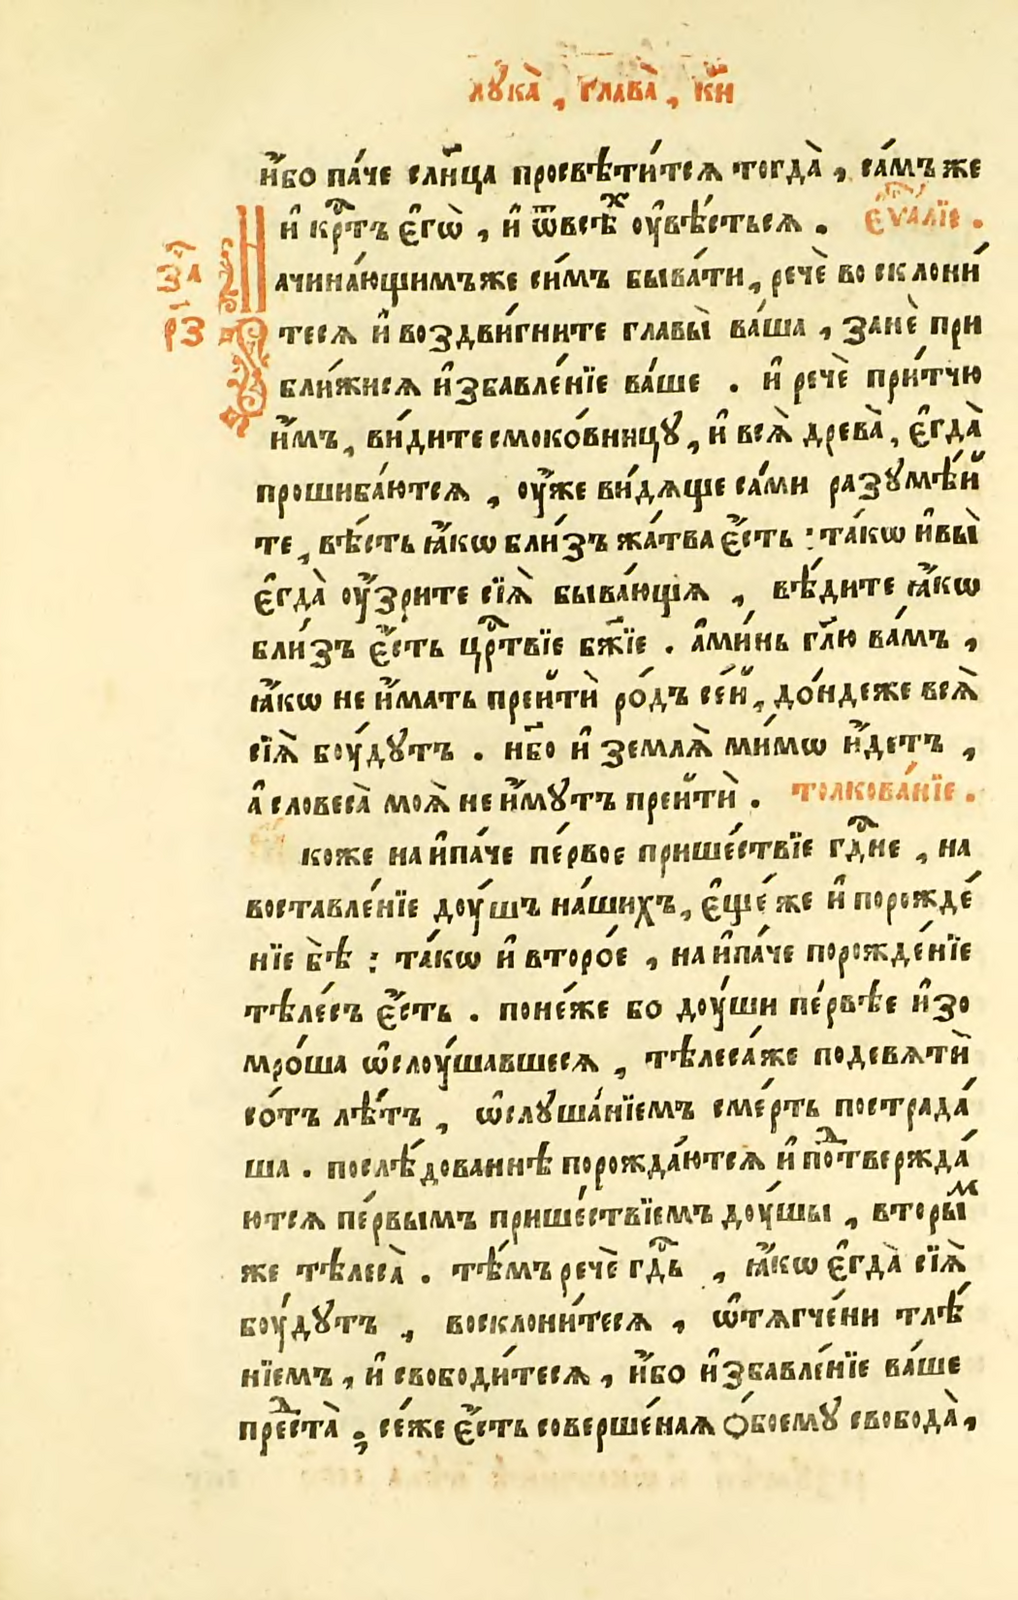 лꙋка̀, глава̀, к҃и
и҆́бо па́че сл҃нца просвѣти́тсѧ тогда̀, са́мъ же
и҆ крⷭ҇тъ є҆гѡ̀, и҆ ѿ всѣⷯ оувѣ́стьсѧ. є҆ѵⷢ҇лїе.
Начина́ющимъ же си́мъ быва́ти, речѐ восклони́
тесѧ и҆ воздви́гните главы̀ ва́ша, занѐ при
бли́жисѧ и҆збавле́нїе ва́ше. и҆ речѐ при́тчю
и҆́мъ, ви́дите смоко́вницꙋ, и҆ всѧ̀ древа̀, є҆гда̀
прошиба́ютсѧ, оу҆́же ви́дѧще са́ми разꙋмѣ́й
те, вѣ́сть ꙗ҆́кѡ бли́зъ жа́тва є҆́сть: та́кѡ и҆ вы̀
є҆гда̀ оу҆́зрите сїѧ̀ быва́ющїѧ, вѣ́дите ꙗ҆́кѡ
бли́зъ є҆́сть црⷭ҇твїе бж҃їе. а҆ми́нь гл҃ю ва́мъ,
ꙗ҆́кѡ не и҆́мать прейтѝ ро́дъ се́й, до́ндеже всѧ̀
сїѧ̀ боу́дꙋтъ. нб҃о и҆ землѧ̀ ми́мѡ и҆́детъ,
а҆ словеса̀ моѧ̀ не и҆́мꙋтъ прейтѝ. толкова́нїе.
коже наипа́че пе́рвое прише́ствїе гⷭ҇дне, на
воставле́нїе доу́шъ на́шихъ, є҆ще́ же и҆ порожде́
нїе бѣ̀: та́кѡ и҆ второ́е, наипа́че порожде́нїе
тѣле́съ є҆́сть. поне́же бо доу́ши пе́рвѣе и҆зо
мро́ша ѡ҆слоу́шавшесѧ, тѣлеса́же по девѧтѝ
со́тъ лѣ́тъ, ѡ҆слꙋша́нїемъ сме́рть пострада́
ша. послѣ́дованнѣ порожда́ютсѧ и҆ поⷣтвержда́
ютсѧ пе́рвымъ прише́ствїемъ доу́шы, вторы́ⷨ
же тѣлеса̀. тѣ́мъ речѐ гⷭ҇дь, ꙗ҆́кѡ є҆гда̀ сїѧ̀
боу́дꙋтъ, восклони́тесѧ, ѡ҆тѧгче́ни тлѣ́
нїемъ, и҆ свободи́тесѧ, и҆́бо и҆збавле́нїе ва́ше
преⷣста̀, се́же є҆́сть соверше́наѧ ѻ҆боемꙋ свобода̀,
за
рз